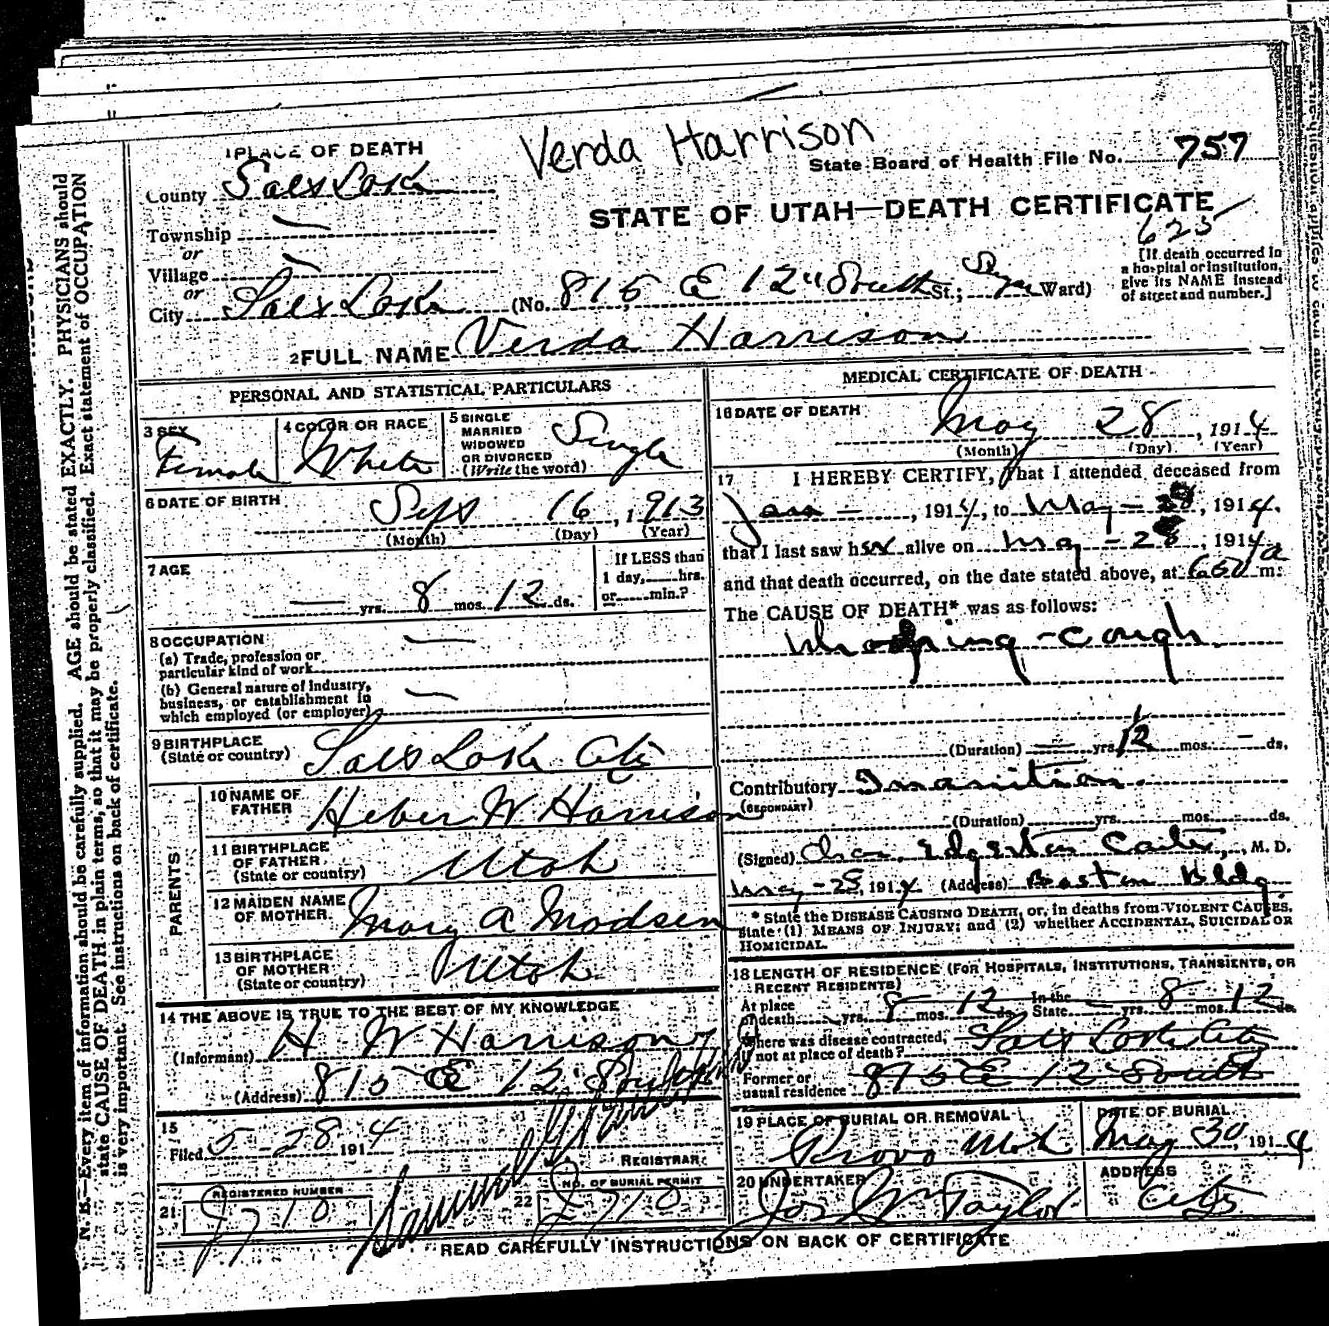 Verda Harrison
1 PLACE OF DEATH
State Board of Health File No. 757
County Salt Lake
STATE OF UTAH—DEATH CERTIFICATE
625
Township —
or
Village —
or
City Salt Lake (No. 815 E 12" South St.; Ward)
[If death occurred in
a hospital or institution,
give its NAME instead
of street and number.]
2 FULL NAME Verda Harrison
PERSONAL AND STATISTICAL PARTICULARS
3 SEX Female
4 COLOR OR RACE White
5 SINGLE
MARRIED
WIDOWED
OR DIVORCED
(Write the word) Single
6 DATE OF BIRTH Sept 16, 1913
(Month) (Day) (Year)
7 AGE
— yrs. 8 mos. 12 ds.
If LESS than
1 day, hrs.
or min.?
8 OCCUPATION —
(a) Trade, profession or
particular kind of work
(b) General nature of industry,
business, or establishment in
which employed (or employer) —
9 BIRTHPLACE
(State or country) Salt Lake City
PARENTS
10 NAME OF
FATHER Heber W Harrison
11 BIRTHPLACE
OF FATHER
(State or country) Utah
12 MAIDEN NAME
OF MOTHER Mary A Madsen
13 BIRTHPLACE
OF MOTHER
(State or country) Utah
14 THE ABOVE IS TRUE TO THE BEST OF MY KNOWLEDGE
(Informant) H W Harrison
(Address) 815 E 12 South
15
Filed 5-28 1914
REGISTRAR
21 REGISTERED NUMBER
22 NO. OF BURIAL PERMIT
MEDICAL CERTIFICATE OF DEATH
16 DATE OF DEATH May 28, 1914
(Month) (Day) (Year)
17 I HEREBY CERTIFY, that I attended deceased from
Jan —, 1914, to May — 28, 1914.
that I last saw her alive on May - 28, 1914
and that death occurred, on the date stated above, at 650 a m.
The CAUSE OF DEATH* was as follows:
Whooping-cough
(Duration) — yrs. 1/2 mos. — ds.
Contributory Inanition
(SECONDARY)
(Duration) yrs. mos. ds.
(Signed) Chas. Edgerton Carter, M. D.
May-28, 1914 (Address) Boston Bldg
* State the DISEASE CAUSING DEATH, or, in deaths from VIOLENT CAUSES,
state (1) MEANS OF INJURY; and (2) whether ACCIDENTAL, SUICIDAL OR
HOMICIDAL.
18 LENGTH OF RESIDENCE (FOR HOSPITALS, INSTITUTIONS, TRANSIENTS, OR
RECENT RESIDENTS)
At place
of death yrs. 8 mos. 12 ds. In the
State — yrs. 8 mos. 12 ds.
Where was disease contracted,
if not at place of death? Salt Lake City
Former or
usual residence 815 E 12 South
19 PLACE OF BURIAL OR REMOVAL
Provo Utah
DATE OF BURIAL
May 30, 1914
20 UNDERTAKER
Jos Wm Taylor
ADDRESS
City
READ CAREFULLY INSTRUCTIONS ON BACK OF CERTIFICATE
N. B.—Every item of information should be carefully supplied. AGE should be stated EXACTLY. PHYSICIANS should
state CAUSE OF DEATH in plain terms, so that it may be properly classified. Exact statement of OCCUPATION
is very important. See instructions on back of certificate.